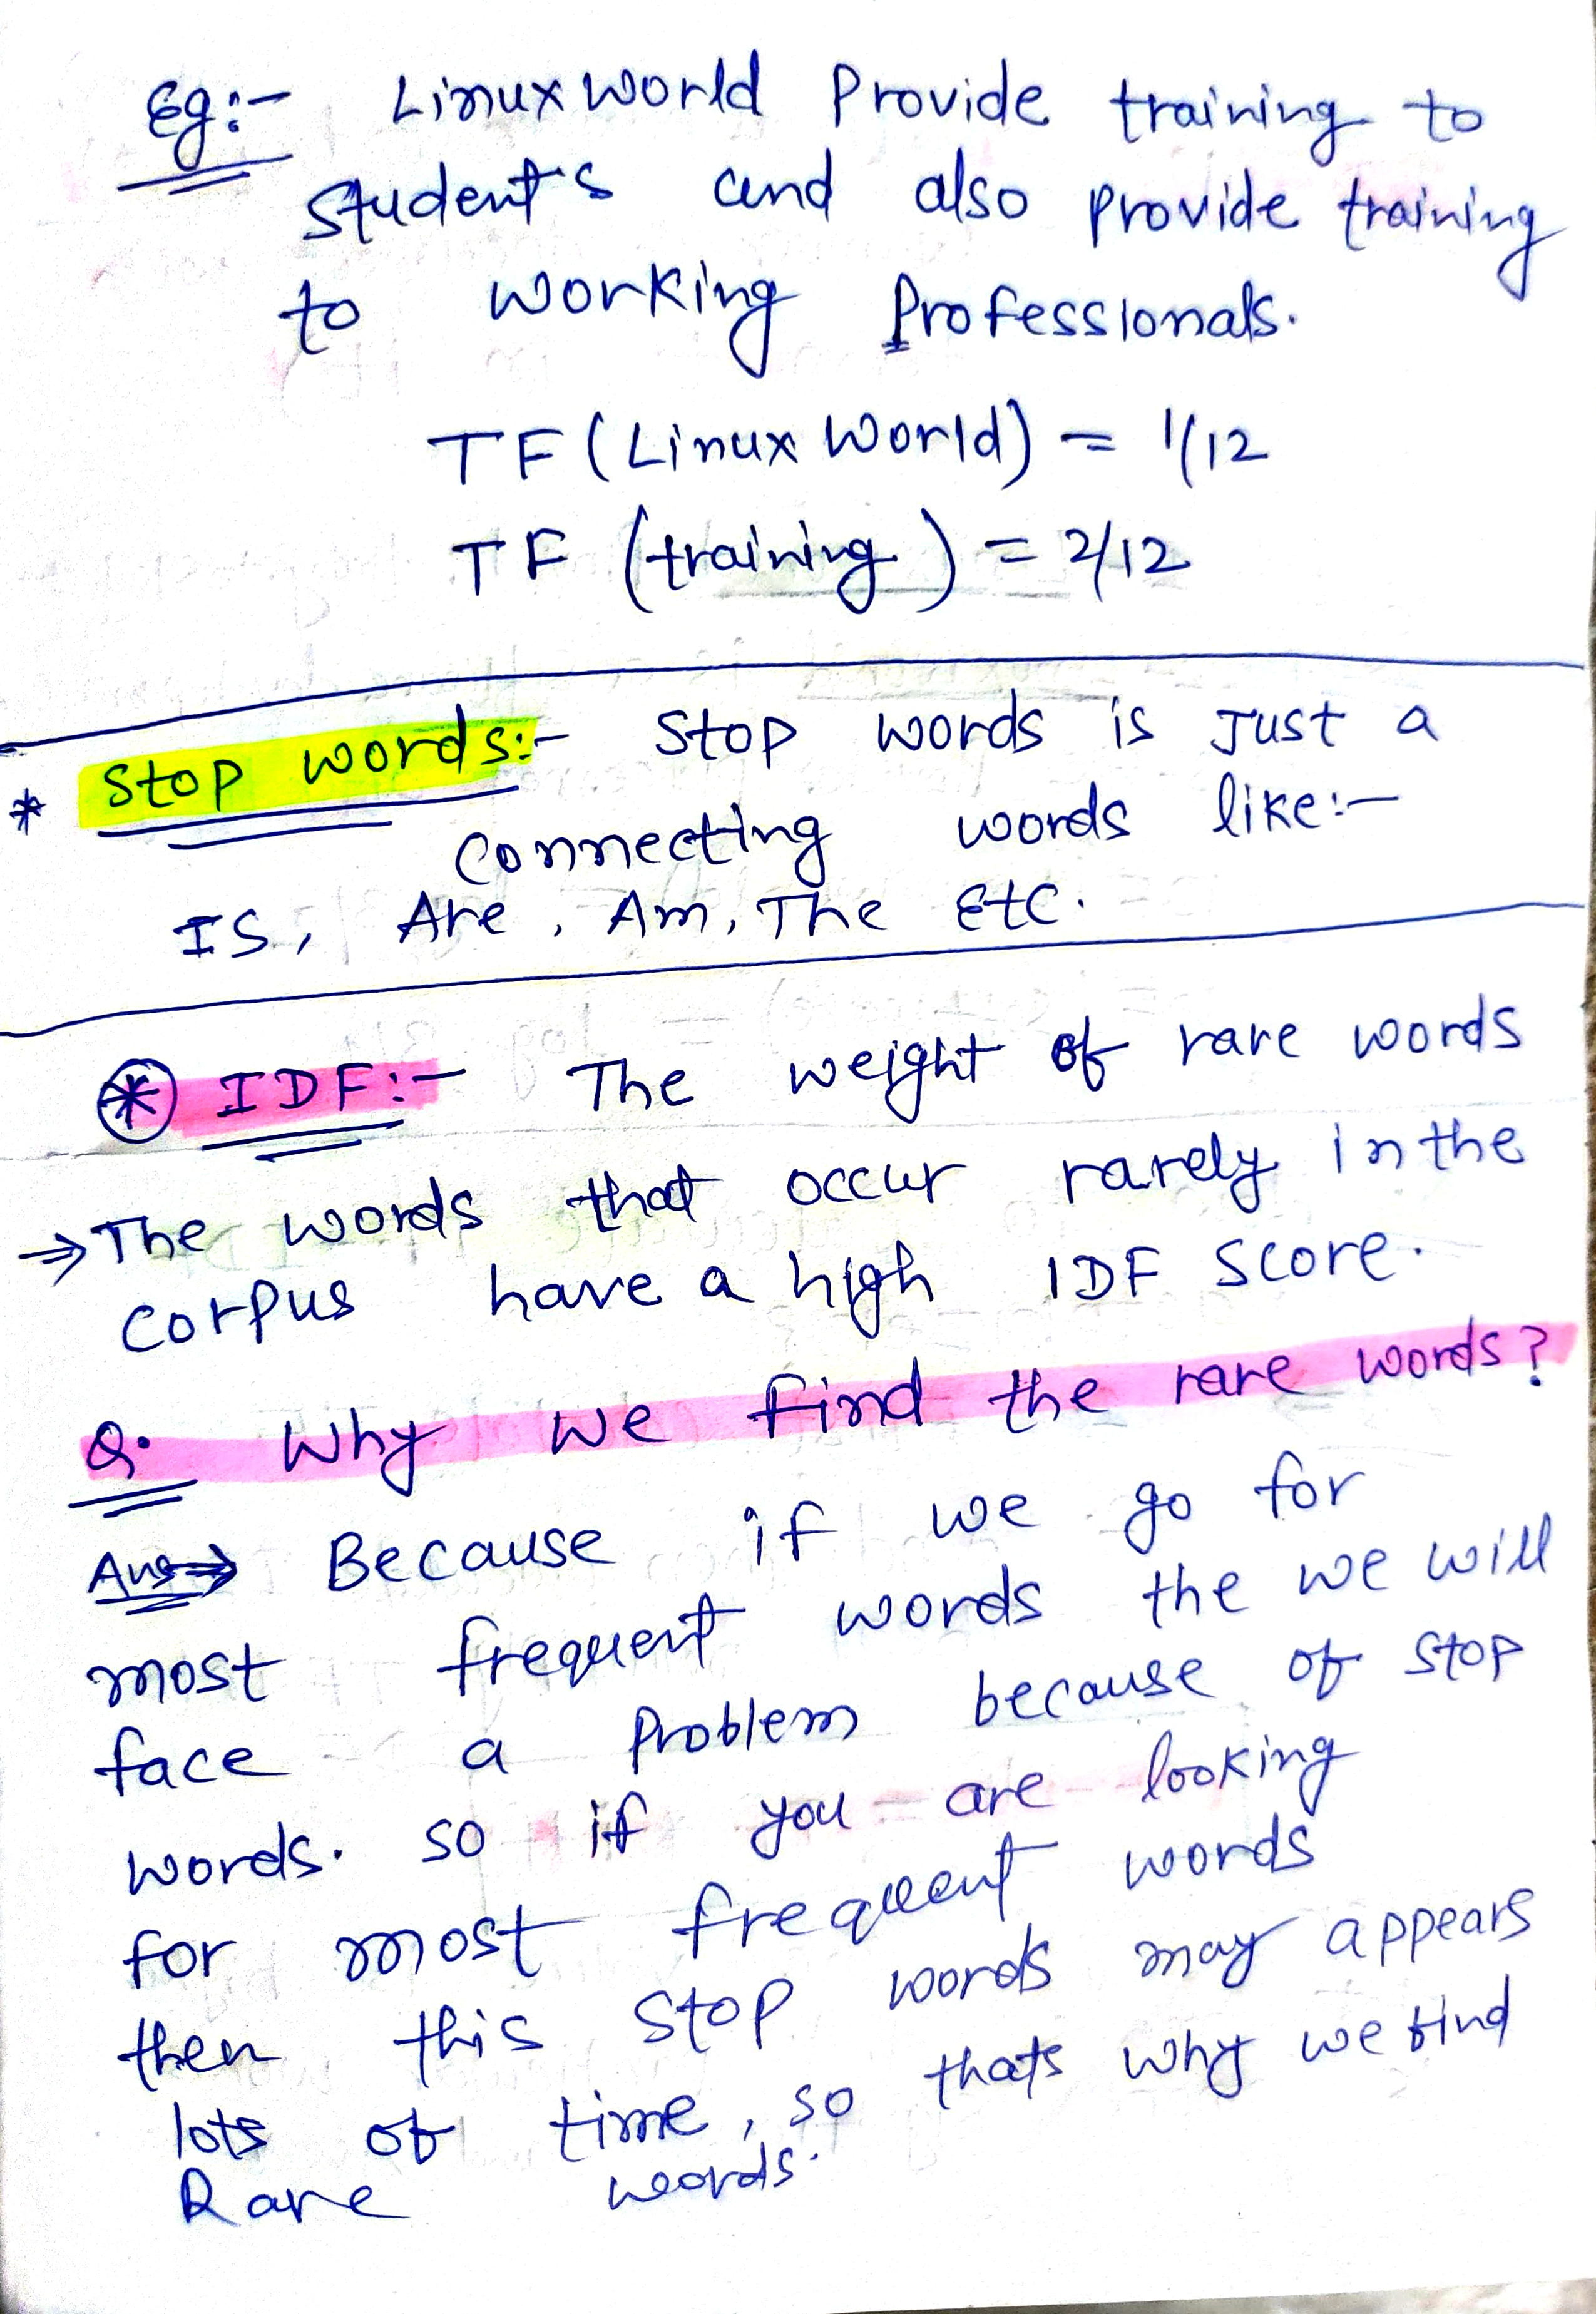 Eg:- LinuxWorld Provide training to
Student's and also provide training
to working Professionals.
TF (Linux World) = 1/12
TF (training) = 2/12
* Stop words:- Stop words is Just a
Connecting words like:-
IS, Are, Am, The Etc.
* IDF:- The weight of rare words
⇒ The words that occur rarely in the
corpus have a high IDF score.
Q. Why we find the rare words?
Ans⇒ Because if we go for
most frequent words the we will
face a Problem because of stop
words. so if you are looking
for most frequent words
then this stop words may appears
lots of time, so thats why we find
Rare words.